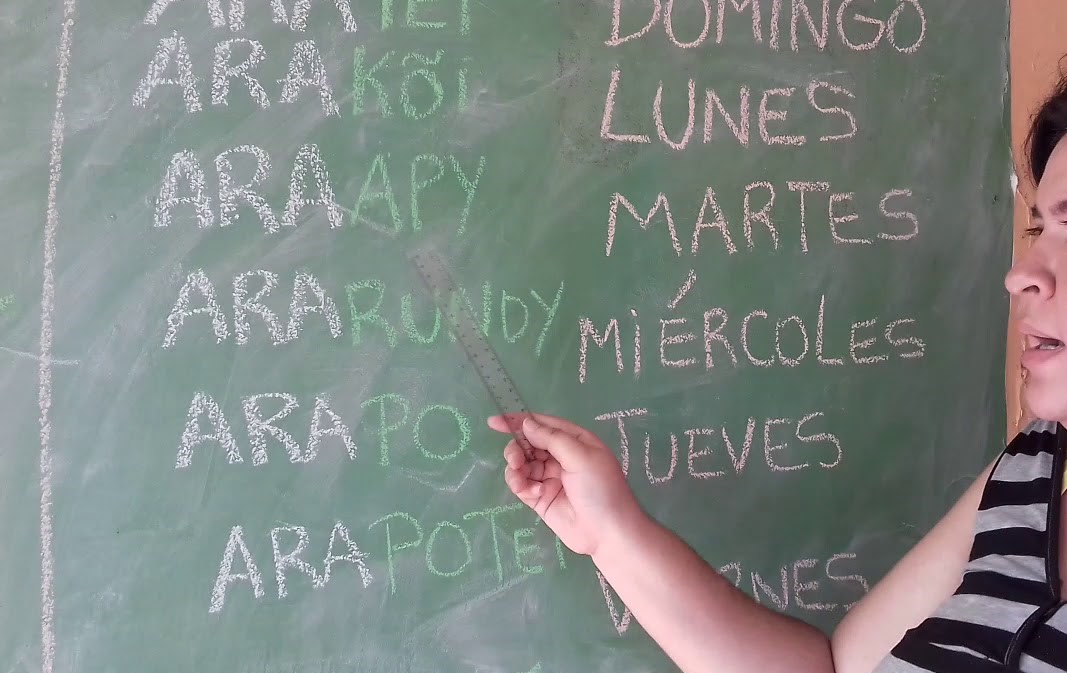 ARA TEĨ DOMINGO
ARA KÕI LUNES
ARA APY MARTES
ARA RUNDY MIÉRCOLES
ARA PO JUEVES
ARA POTEĨ